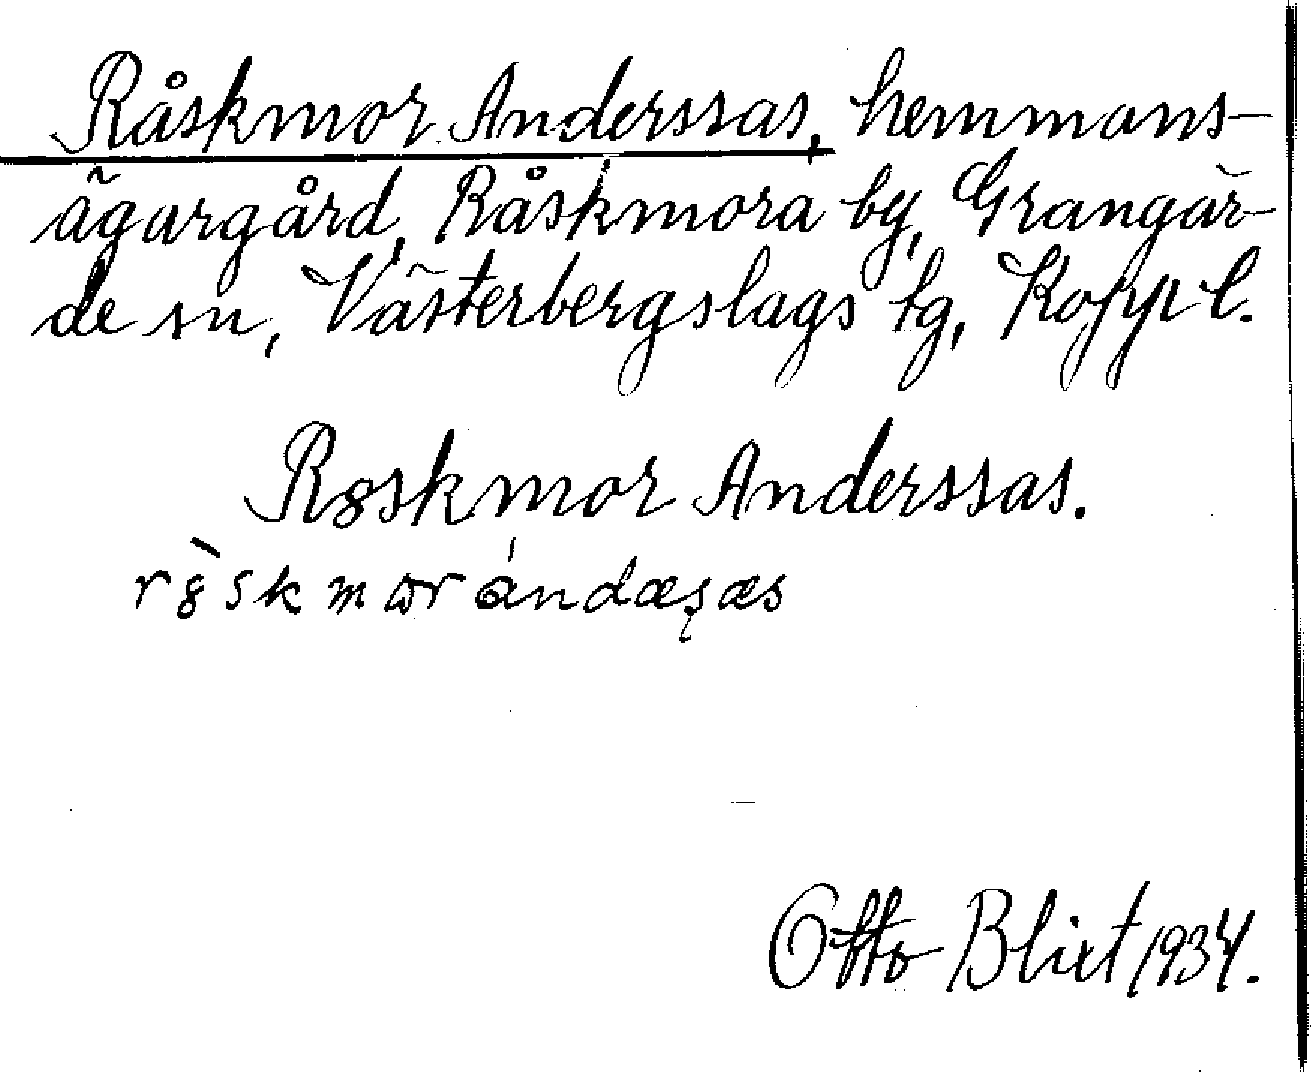 Råskmor Anderssas, hemmans-
ägargård, Råskmora by, Grangär-
de sn, Västerbergslags tg, Kopp l.
R8skmor Anderssas.
Otto Blixt 1934.